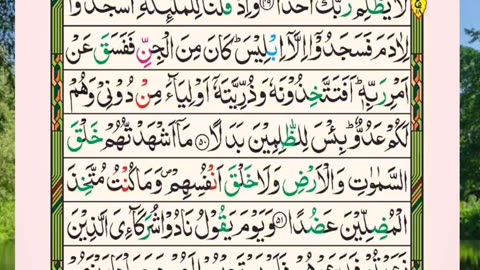 لَا يَظْلِمُ رَبُّكَ اَحَدًا ﴿۴۹﴾ وَاِذْ قُلْنَا لِلْمَلٰٓئِكَةِ اسْجُدُوْا
لِاٰدَمَ فَسَجَدُوْٓا اِلَّآ اِبْلِيْسَ ؕ كَانَ مِنَ الْجِنِّ فَفَسَقَ عَنْ
اَمْرِ رَبِّهٖ ؕ اَفَتَتَّخِذُوْنَهٗ وَذُرِّيَّتَهٗٓ اَوْلِيَآءَ مِنْ دُوْنِيْ وَهُمْ
لَكُمْ عَدُوٌّ ؕ بِئْسَ لِلظّٰلِمِيْنَ بَدَلًا ﴿۵۰﴾ مَآ اَشْهَدْتُّهُمْ خَلْقَ
السَّمٰوٰتِ وَالْاَرْضِ وَلَا خَلْقَ اَنْفُسِهِمْ ۪ وَمَا كُنْتُ مُتَّخِذَ
الْمُضِلِّيْنَ عَضُدًا ﴿۵۱﴾ وَيَوْمَ يَقُوْلُ نَادُوْا شُرَكَآءِيَ الَّذِيْنَ